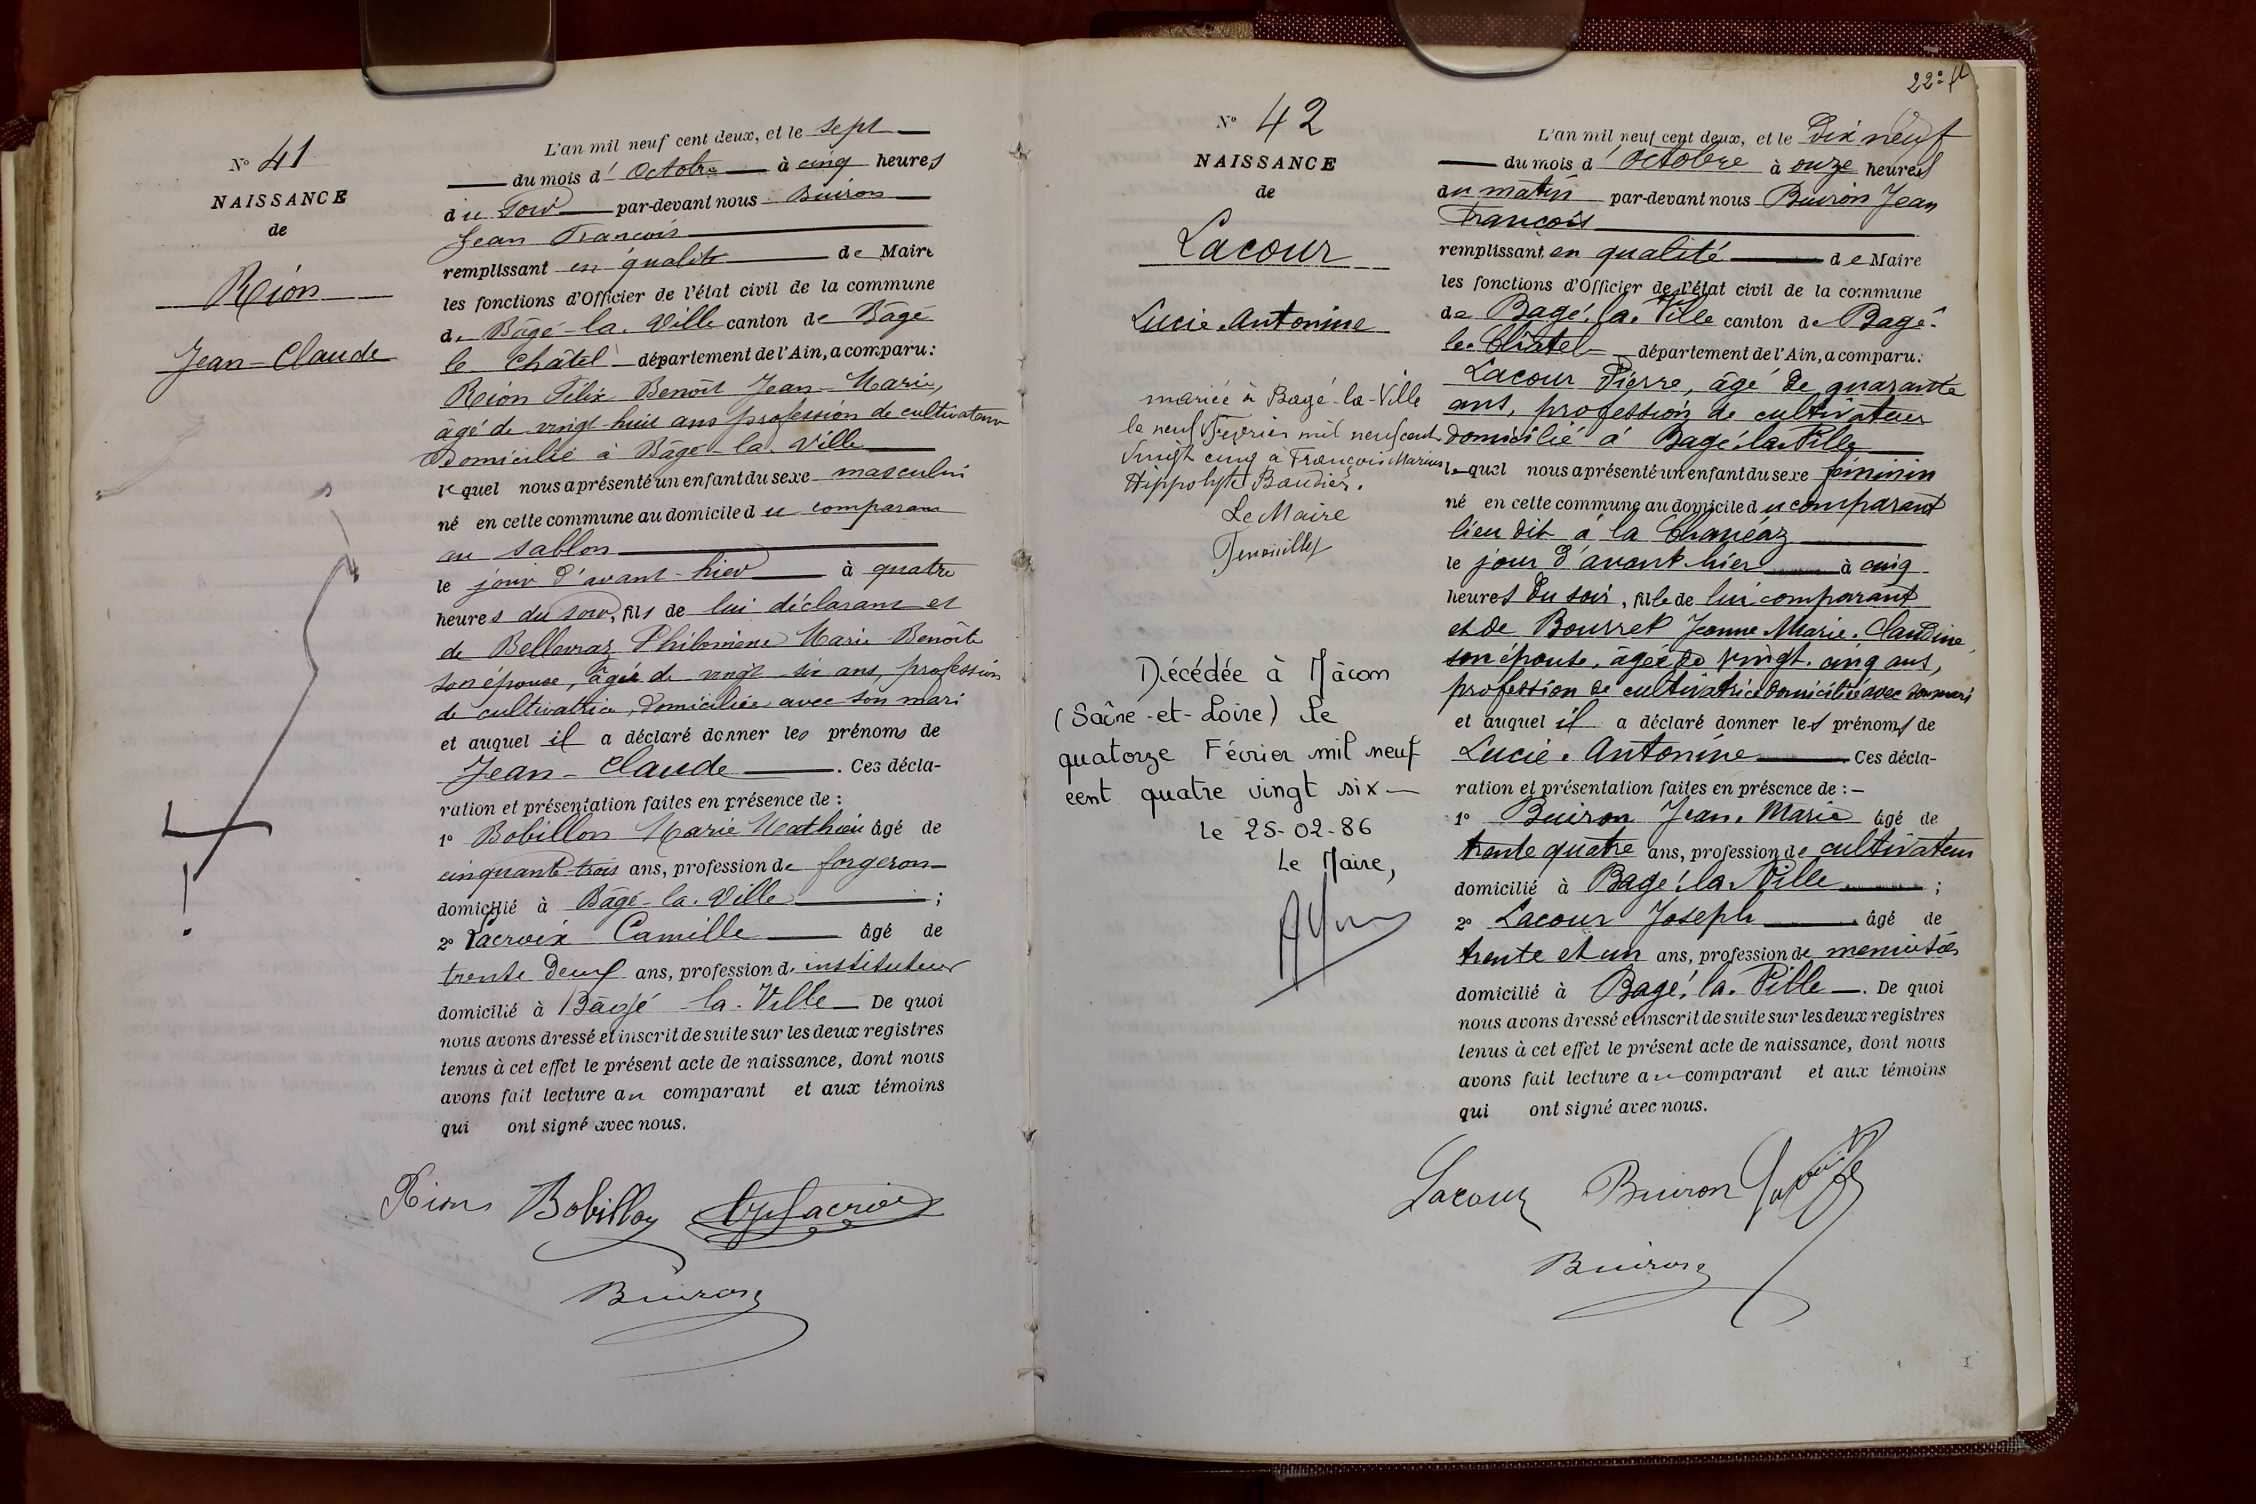 N° 41
NAISSANCE
de
Rion
Jean-Claude
L'an mil neuf cent deux, et le sept
du mois d'Octobre à cinq heures
du soir par-devant nous Buiron
Jean François
remplissant en qualité de Maire
les fonctions d'Officier de l'état civil de la commune
de Bâgé-la-Ville canton de Bâgé
le Châtel département de l'Ain, a comparu:
Rion Félix Benoît Jean-Marie,
âgé de vingt huit ans profession de cultivateur
domicilié à Bâgé-la-Ville
lequel nous a présenté un enfant du sexe masculin
né en cette commune au domicile du comparant
au sablon
le jour d'avant-hier à quatre
heures du soir, fils de lui déclarant et
de Bellevraz Philomène Marie Benoîte
son épouse, âgée de vingt six ans, profession
de cultivatrice, domiciliée avec son mari
et auquel il a déclaré donner les prénoms de
Jean-Claude. Ces décla-
ration et présentation faites en présence de:
1° Bobillon Marie Mathieu âgé de
cinquante-trois ans, profession de forgeron
domicilié à Bâgé-la-Ville;
2° Lacroix Camille âgé de
trente deux ans, profession d'instituteur
domicilié à Bâgé-la-Ville De quoi
nous avons dressé et inscrit de suite sur les deux registres
tenus à cet effet le présent acte de naissance, dont nous
avons fait lecture au comparant et aux témoins
qui ont signé avec nous.
Rion Bobillon Lacroix
Buiron
22e
N° 42
NAISSANCE
de
Lacour
Lucie Antonine
mariée à Bagé-la-Ville
le neuf Février mil neuf cent
vingt cinq à François Marius
Hippolyte Baudier.
Le Maire
Décédée à Mâcon
(Saône-et-Loire) le
quatorze Février mil neuf
cent quatre vingt six
Le 25-02-86
Le Maire,
L'an mil neuf cent deux, et le dix neuf
du mois d'Octobre à onze heures
du matin par-devant nous Buiron Jean
François
remplissant en qualité de Maire
les fonctions d'Officier de l'état civil de la commune
de Bagé-la-Ville canton de Bagé-
le-Châtel département de l'Ain, a comparu:
Lacour Pierre, âgé de quarante
ans, profession de cultivateur
domicilié à Bagé-la-Ville
lequel nous a présenté un enfant du sexe féminin
né en cette commune au domicile du comparant
lieu dit à la Chanéaz
le jour d'avant hier à cinq
heures du soir, fille de lui comparant
et de Bourret Jeanne-Marie-Claudine,
son épouse, âgée de vingt-cinq ans,
profession de cultivatrice domiciliée avec son mari
et auquel il a déclaré donner les prénoms de
Lucie Antonine Ces décla-
ration et présentation faites en présence de:—
1° Buiron Jean-Marie âgé de
trente quatre ans, profession de cultivateur
domicilié à Bagé-la-Ville;
2° Lacour Joseph âgé de
trente et un ans, profession de menuisier
domicilié à Bagé-la-Ville. De quoi
nous avons dressé et inscrit de suite sur les deux registres
tenus à cet effet le présent acte de naissance, dont nous
avons fait lecture au comparant et aux témoins
qui ont signé avec nous.
Lacour Buiron
Buiron